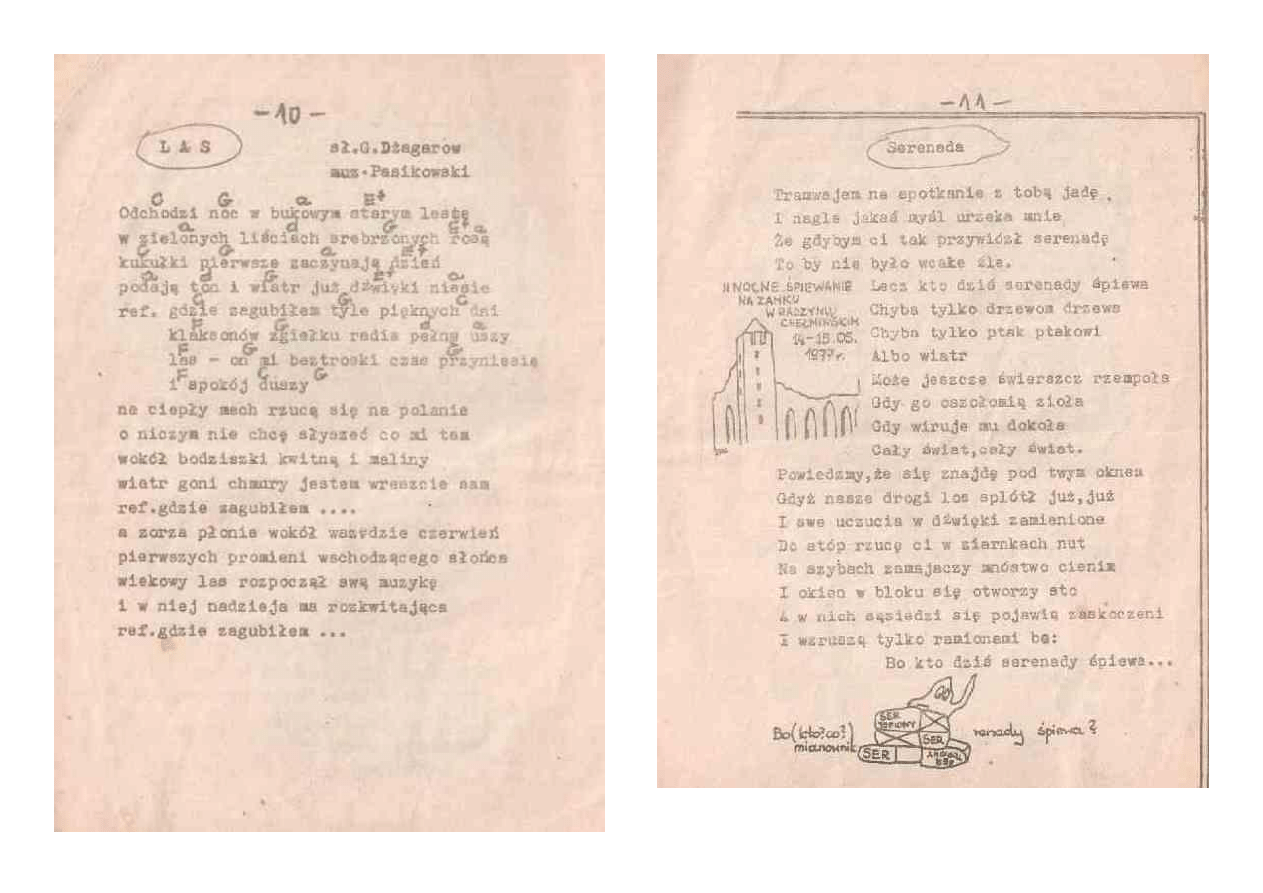 -10-
LAS
sł.G.Dżagarow
muz.Pasikowski
C G a E+
Odchodzi noc w bukowym starym lesie
a d G E+ a
w zielonych liściach srebrzonych rosą
C G a E+
kukułki pierwsze zaczynają dzień
a d G E+ a
podają ton i wiatr już dźwięki niesie
C G C
ref. gdzie zagubiłem tyle pięknych dni
F G d a
klaksonów zgiełku radia pełne uszy
F G G
las - on mi beztroski czas przyniesie
F C G
i spokój duszy
na ciepły mech rzucę się na polanie
o niczym nie chcę słyszeć co mi tam
wokół bodziszki kwitną i maliny
wiatr goni chmury jestem wreszcie sam
ref.gdzie zagubiłem ....
a zorza płonie wokół wszędzie czerwień
pierwszych promieni wschodzącego słońca
wiekowy las rozpoczął swą muzykę
i w niej nadzieja ma rozkwitająca
ref.gdzie zagubiłem ...
-11-
Serenada
Tramwajem na spotkanie z tobą jadę,
I nagle jakaś myśl urzeka mnie
Że gdybym ci tak przywiózł serenadę
To by nie było wcake źle.
Lecz kto dziś serenady śpiewa
Chyba tylko drzewom drzewa
Chyba tylko ptak ptakowi
Albo wiatr
Może jeszcze świerszcz rzempoła
Gdy go oszołomią zioła
Gdy wiruje mu dokoła
Cały świat,cały świat.
II NOCNE ŚPIEWANIE
NA ZAMKU
W RADZYNIU
CHEŁMIŃSKIM
14-15.05.
1977r.
Powiedzmy,że się znajdę pod twym oknem
Gdyż nasze drogi los splótł już,już
I swe uczucia w dźwięki zamienione
Do stóp rzucę ci w ziarnkach nut
Na szybach zamajaczy mnóstwo cienim
I okien w bloku się otworzy sto
A w nich sąsiedzi się pojawią zaskoczeni
I wzruszą tylko ramionami bo:
Bo kto dziś serenady śpiewa...
Bo(kto?co?)
mianownik
SER
TOPIONY
SER
SER
renady śpiewa?